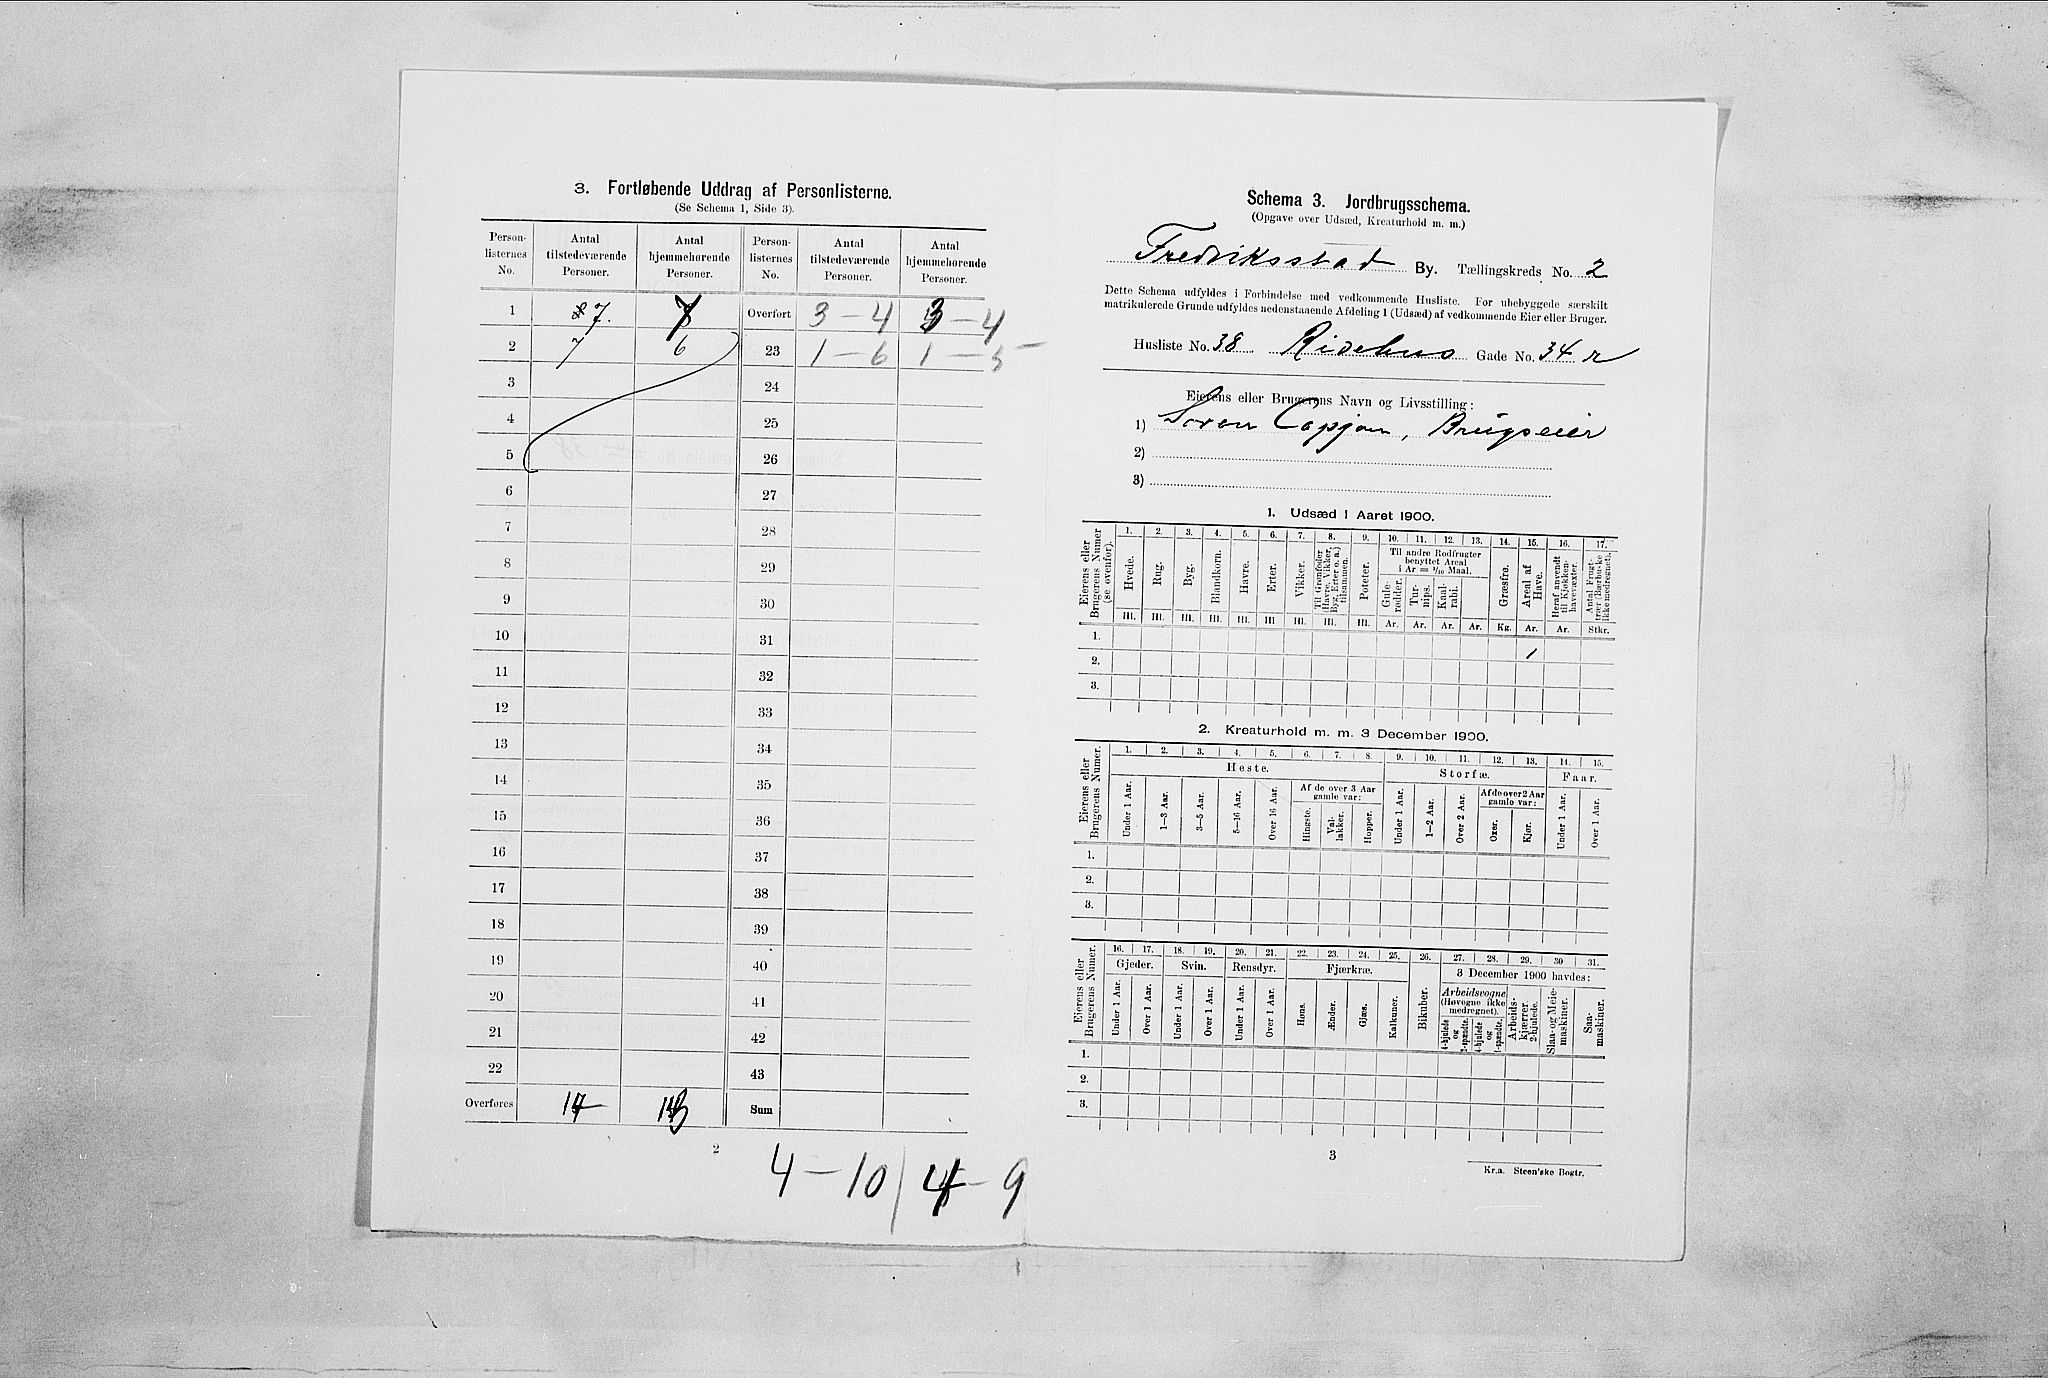 3. Fortløbende Uddrag af Personlisterne.
(Se Schema 1, Side 3).
Person-listernes No. Antal tilstedeværende Personer. Antal hjemmehørende Personer. Person-listernes No. Antal tilstedeværende Personer. Antal hjemmehørende Personer.
1 7. 7 Overført 3 – 4 3 – 4
2 7 6 23 1 – 6 1 – 5
3 24
4 25
5 26
6 27
7 28
8 29
9 30
10 31
11 32
12 33
13 34
14 35
15 36
16 37
17 38
18 39
19 40
20 41
21 42
22 43
Overføres 14 13 Sum
2
4 – 10 4 – 9
Schema 3. Jordbrugsschema.
(Opgave over Udsæd, Kreaturhold m. m.)
Fredriksstad By. Tællingskreds No. 2
Dette Schema udfyldes i Forbindelse med vedkommende Husliste. For ubebyggede særskilt
matrikulerede Grunde udfyldes nedenstaaende Afdeling 1 (Udsæd) af vedkommende Eier eller Bruger.
Husliste No. 38 Ridehus Gade No. 34 r
Eierens eller Brugerens Navn og Livsstilling:
1) Søren Capjon, Brugseier
2)
3)
1. Udsæd i Aaret 1900.
1. 2. 3. 4. 5. 6. 7. 8. 9. 10. 11. 12. 13. 14. 15. 16. 17.
Eierens eller Brugerens Numer (se ovenfor). Hvede. Rug. Byg. Blandkorn. Havre. Erter. Vikker. Til Grønfoder Havre, Vikker, Byg, Erter o. a.) tilsammen. Poteter. Til andre Rodfrugter benyttet Areal i Ar = 1/10 Maal. Gule-rødder. Tur-nips. Kaal-rabi. Græsfrø. Areal af Have. Heraf anvendt til Kjøkken-havevæxter. Antal Frugt-trær (Bærbuske ikke medregnet).
Hl. Hl. Hl. Hl. Hl. Hl. Hl. Hl. Hl. Ar. Ar. Ar. Ar. Kg. Ar. Ar. Stkr.
1.
2. 1
3.
2. Kreaturhold m. m. 3 December 1900.
1. 2. 3. 4. 5. 6. 7. 8. 9. 10. 11. 12. 13. 14. 15.
Eierens eller Brugerens Numer. Heste. Storfæ. Faar.
Under 1 Aar. 1–3 Aar. 3–5 Aar. 5–16 Aar. Over 16 Aar. Af de over 3 Aar gamle var: Hingste. Val-lakker. Hopper. Under 1 Aar. 1–2 Aar. Over 2 Aar. Af de over 2 Aar gamle var: Oxer. Kjør. Under 1 Aar. Over 1 Aar.
1.
2.
3.
16. 17. 18. 19. 20. 21. 22. 23. 24. 25. 26. 27. 28. 29. 30 31.
Eierens eller Brugerens Numer. Gjeder. Svin. Rensdyr. Fjærkræ. Bikuber. 3 December 1900 havdes:
Under 1 Aar. Over 1 Aar. Under 1 Aar. Over 1 Aar. Under 1 Aar. Over 1 Aar. Høns. Ænder. Gjæs. Kalkuner. Arbeidsvogne (Høvogne ikke medregnet). 4-hjulede og 2-spændte. 4-hjulede og 1-spændte. Arbeids-kjærrer 2-hjulede. Slaa- og Meie-maskiner. Saa-maskiner.
1.
2.
3.
3
Kr.a. Steen'ske Bogtr.